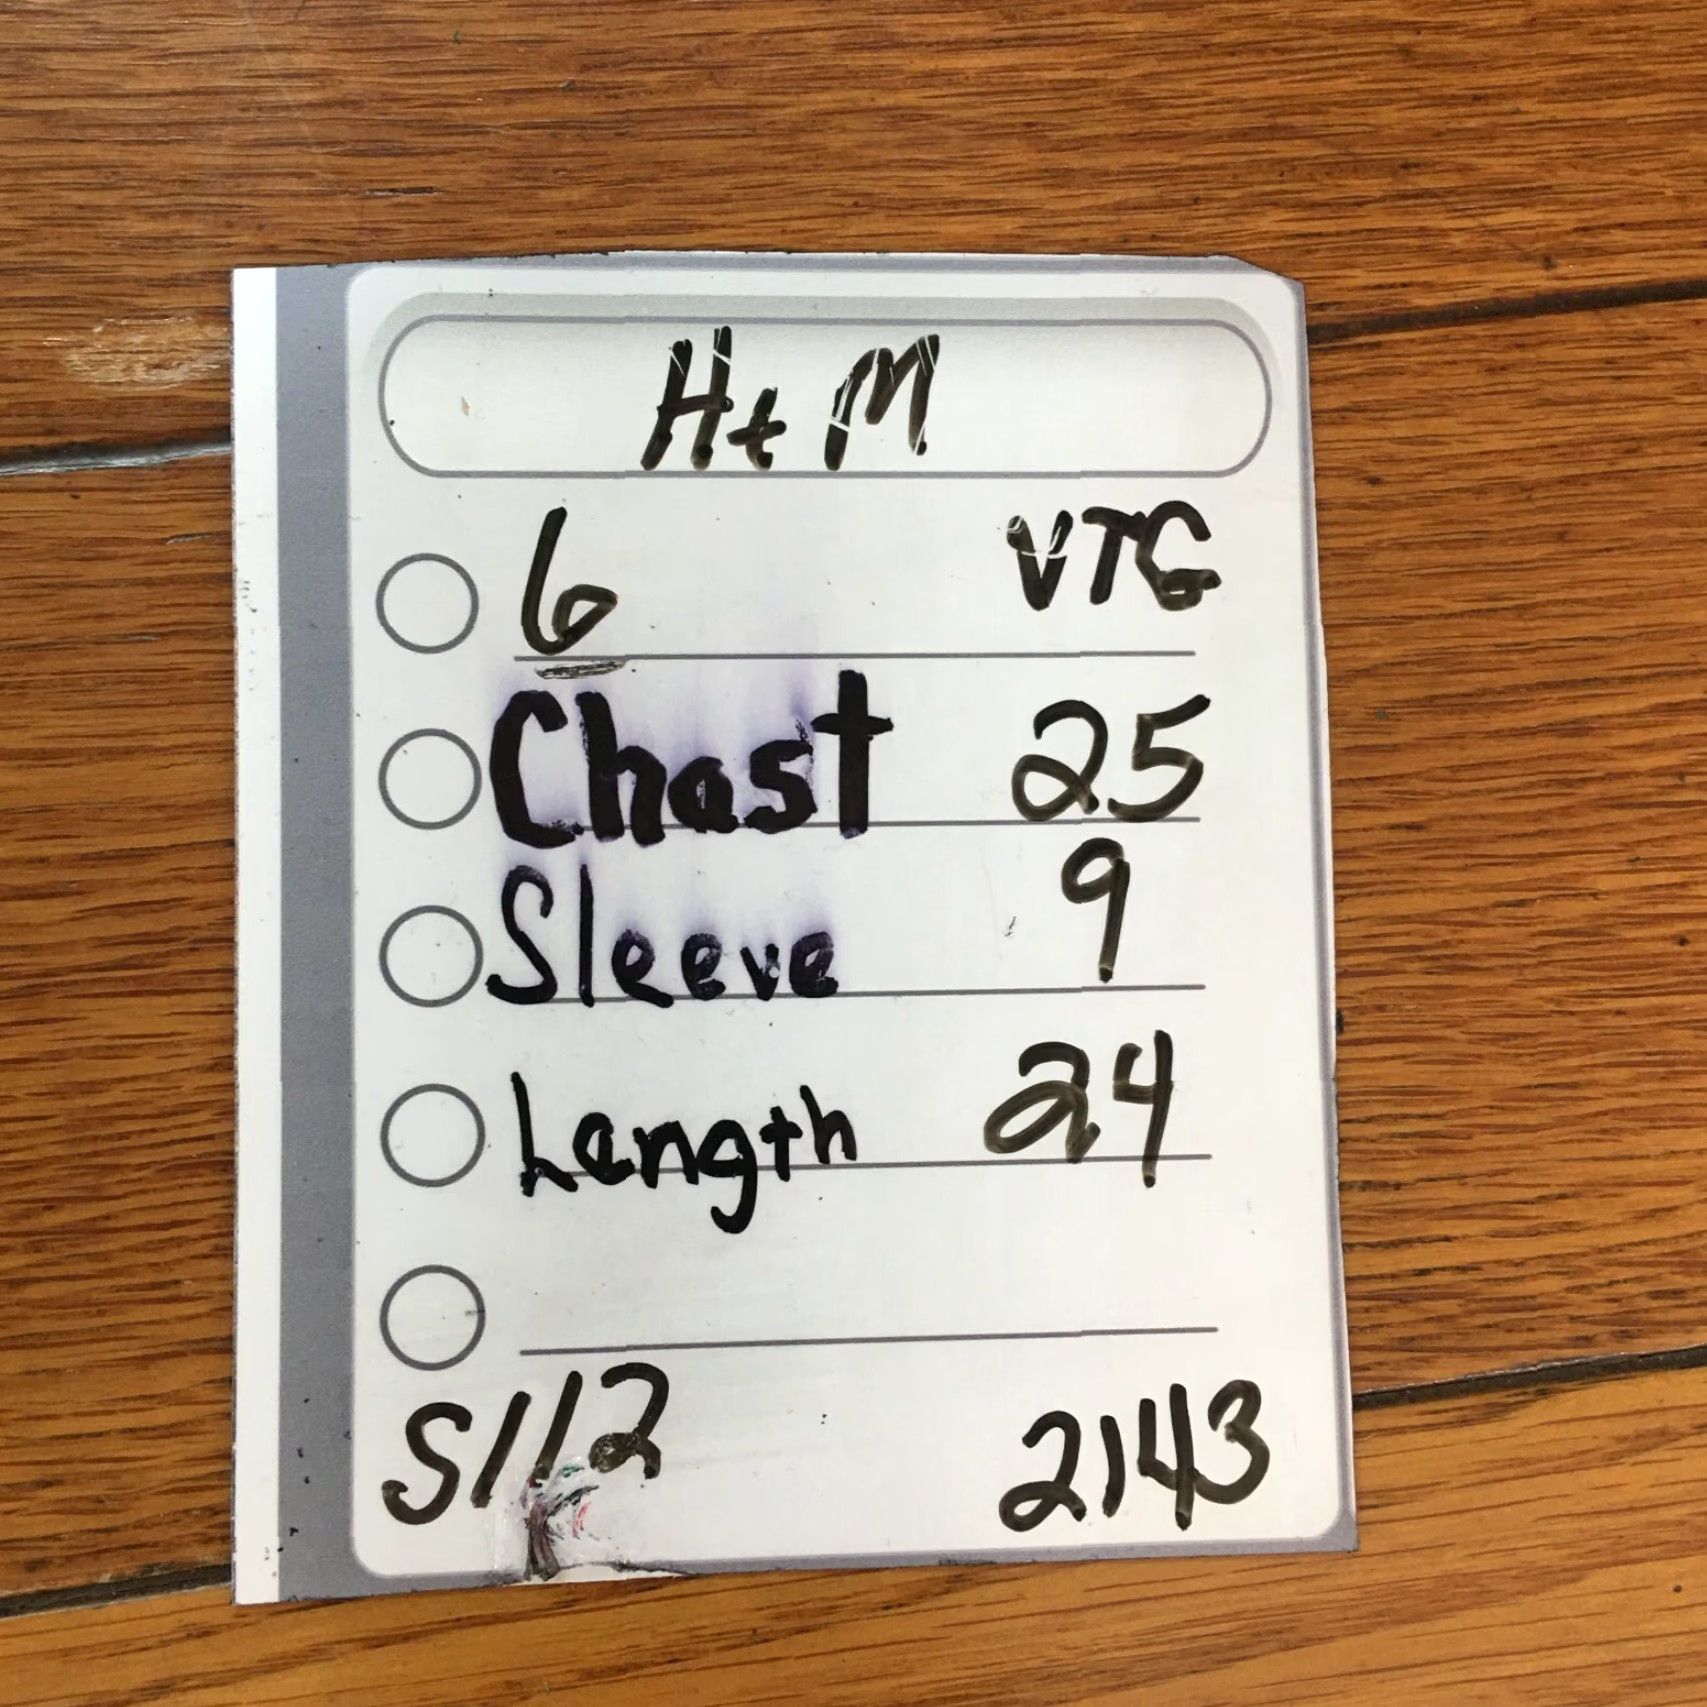 H+M
6 VTG
Chest 25
Sleeve 9
Length 24
S112 2143